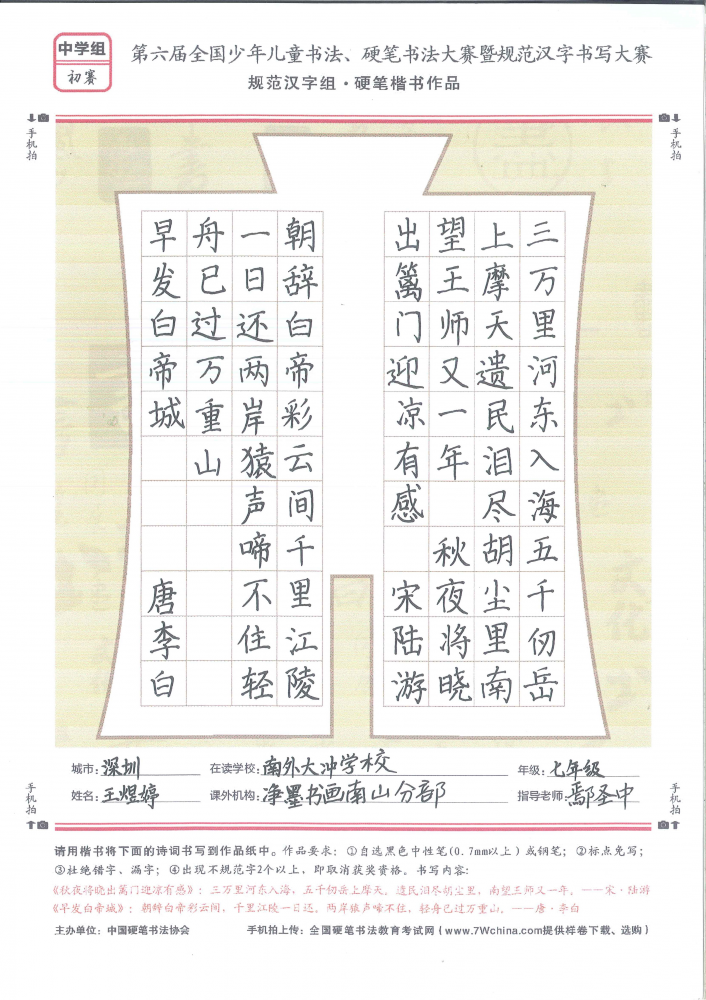 中学组
初赛
第六届全国少年儿童书法、硬笔书法大赛暨规范汉字书写大赛
规范汉字组·硬笔楷书作品
手机拍
手机拍
三万里河东入海五千仞岳
上摩天遗民泪尽胡尘里南
望王师又一年 秋夜将晓
出篱门迎凉有感 宋陆游
朝辞白帝彩云间千里江陵
一日还两岸猿声啼不住轻
舟已过万重山
早发白帝城 唐李白
城市:深圳 在读学校:南外大冲学校 年级:七年级
姓名:王煜婷 课外机构:净墨书画南山分部 指导老师:鄢圣中
手机拍
手机拍
请用楷书将下面的诗词书写到作品纸中。作品要求:①自选黑色中性笔(0.7mm以上)或钢笔;②标点免写;
③杜绝错字、漏字;④出现不规范字2个以上,即取消获奖资格。书写内容:
《秋夜将晓出篱门迎凉有感》:三万里河东入海,五千仞岳上摩天。遗民泪尽胡尘里,南望王师又一年。——宋·陆游
《早发白帝城》:朝辞白帝彩云间,千里江陵一日还。两岸猿声啼不住,轻舟已过万重山。——唐·李白
主办单位:中国硬笔书法协会 手机拍上传:全国硬笔书法教育考试网(www.7Wchina.com提供样卷下载、选购)